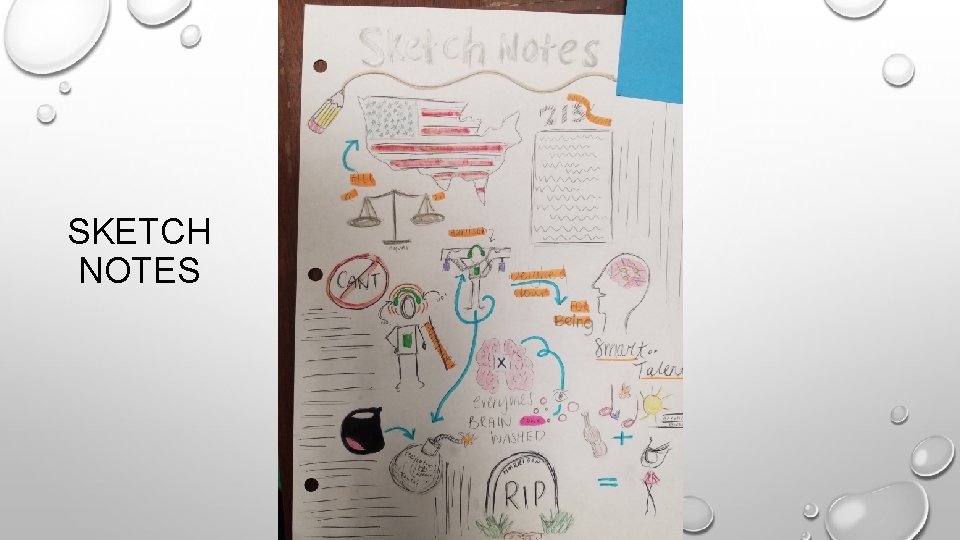 SKETCH
NOTES
Sketch Notes
213
ALL
CAN'T
For
Being
Smart or
Talen
X
everyones
BRAIN
WASHED
HARRISON
RIP
+
=